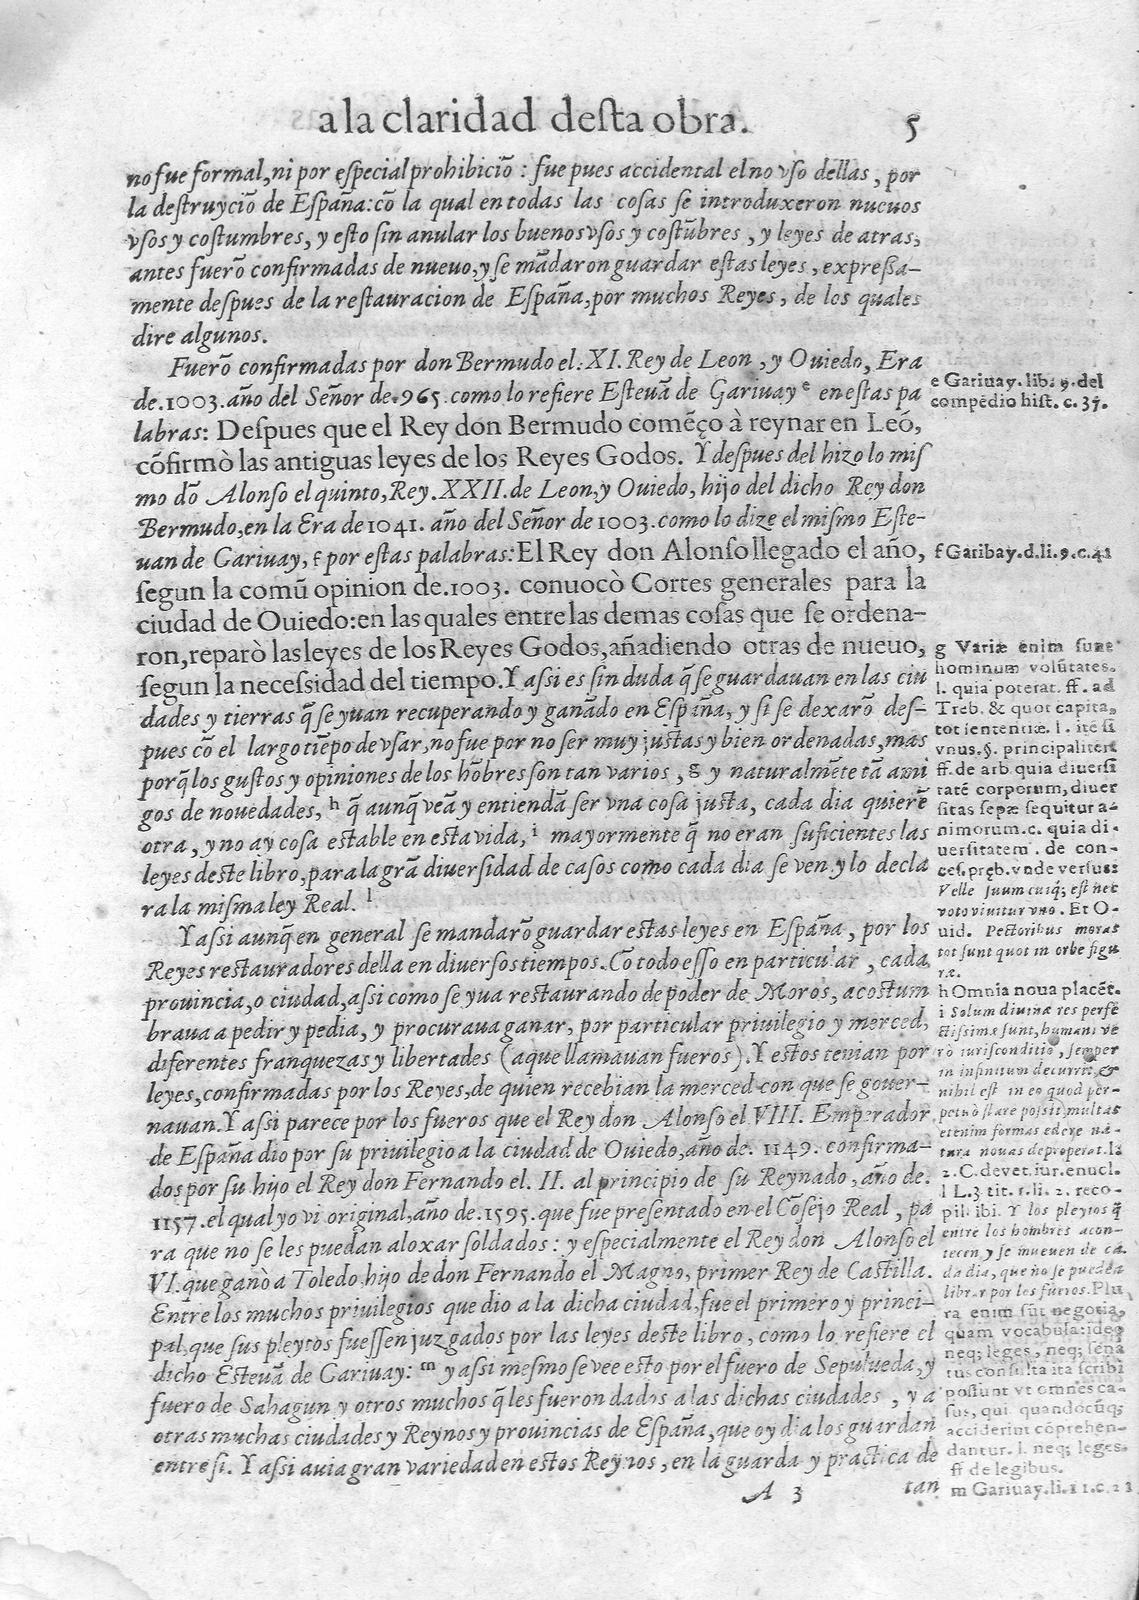 a la claridad desta obra. 5
no fue formal, ni por especial prohibiciō: fue pues accidental el no vso dellas, por
la destruyciō de España: cō la qual en todas las cosas se introduxeron nueuos
vsos y costumbres, y esto sin anular los buenos vsos y costūbres, y leyes de atras,
antes fuerō confirmadas de nueuo, y se mādaron guardar estas leyes, expressa-
mente despues de la restauracion de España, por muchos Reyes, de los quales
dire algunos.
Fuerō confirmadas por don Bermudo el. XI. Rey de Leon, y Ouiedo, Era
de. 1003. año del Señor de. 965. como lo refiere Esteuā de Gariuay e en estas pa
labras: Despues que el Rey don Bermudo comēço à reynar en Leō,
cōfirmò las antiguas leyes de los Reyes Godos. Y despues del hizo lo mis
mo dō Alonso el quinto, Rey. XXII. de Leon, y Ouiedo, hijo del dicho Rey don
Bermudo, en la Era de 1041. año del Señor de 1003. como lo dize el mismo Este-
uan de Gariuay, f por estas palabras: El Rey don Alonso llegado el año,
segun la comū opinion de. 1003. conuocò Cortes generales para la
ciudad de Ouiedo: en las quales entre las demas cosas que se ordena-
ron, reparò las leyes de los Reyes Godos, añadiendo otras de nueuo,
segun la necessidad del tiempo. Y assi es sin duda q̄ se guardauan en las ciu
dades y tierras q̄ se yuan recuperando y ganādo en España, y si se dexarō des-
pues cō el largo tiēpo de vsar, no fue por no ser muy justas y bien ordenadas, mas
porq̄ los gustos y opiniones de los hōbres son tan varios, g y naturalmēte tā ami
gos de nouedades, h q̄ aunq̄ veā y entiendā ser vna cosa justa, cada dia quierē
otra, y no ay cosa estable en esta vida, i mayormente q̄ no eran suficientes las
leyes deste libro, para la grā diuersidad de casos como cada dia se ven y lo decla
ra la misma ley Real. l
Y assi aunq̄ en general se mandarō guardar estas leyes en España, por los
Reyes restauradores della en diuersos tiempos. Cō todo esso en particular, cada
prouincia, o ciudad, assi como se yua restaurando de poder de Moros, acostum
braua a pedir y pedia, y procuraua ganar, por particular priuilegio y merced,
diferentes franquezas y libertades (a que llamauan fueros). Y estos tenian por
leyes, confirmadas por los Reyes, de quien recebian la merced con que se gouer-
nauan. Y assi parece por los fueros que el Rey don Alonso el VIII. Emperador
de España dio por su priuilegio a la ciudad de Ouiedo, año de. 1149. confirma-
dos por su hijo el Rey don Fernando el. II. al principio de su Reynado, año de.
1157. el qual yo vi original, año de. 1595. que fue presentado en el Cōsejo Real, pa
ra que no se les puedan aloxar soldados: y especialmente el Rey don Alonso el
VI. que ganò a Toledo, hijo de don Fernando el Magno, primer Rey de Castilla.
Entre los muchos priuilegios que dio a la dicha ciudad, fue el primero y princi-
pal, que sus pleytos fuessen juzgados por las leyes deste libro, como lo refiere el
dicho Esteuā de Gariuay: m y assi mesmo se vee esto por el fuero de Sepulueda, y
fuero de Sahagun y otros muchos q̄ les fueron dados a las dichas ciudades, y a
otras muchas ciudades y Reynos y prouincias de España, que oy dia los guardan
entre si. Y assi auia gran variedad en estos Reynos, en la guarda y practica de
A 3 tan
e Gariuay. lib. 9. del
compēdio hist. c. 37.
f Garibay. d. li. 9. c. 41
g Variæ enim sunt
hominum volūtates.
l. quia poterat. ff. ad
Treb. & quot capita,
tot sententiæ. l. itē si
vnus. §. principaliter
ff. de arb. quia diuersi
tatē corporum, diuer
sitas sepæ sequitur a-
nimorum. c. quia di-
uersitatem. de con-
ces. preb. vnde versus:
Velle suum cuiq; est nec
voto viuitur vno. Et O-
uid. Pectoribus mores
tot sunt quot in orbe figu
ræ.
h Omnia noua placēt.
i Solum diuinæ res perfe
ctissimæ sunt, humani ve
rò iuris conditio, semper
in infinitum decurrit, &
nihil est in eo quod per-
petuò stare possit, multas
etenim formas edere na-
tura nouas deproperat. l.
2. C. de vet. iur. enucl.
l L. 3. tit. 1. li. 2. reco-
pil. ibi. Y los pleytos q̄
entre los hombres acon-
tecen, y se mueuen de ca-
da dia, que no se pueden
librar por los fueros. Plu
ra enim sūt negotia,
quam vocabula: ideo
neq; leges, neq; sena
tus consulta ita scribi
possunt vt omnes ca-
sus, qui quandocūq;
acciderint cōprehen-
dantur. l. neq; leges.
ff. de legibus.
m Gariuay. li. 11. c. 21